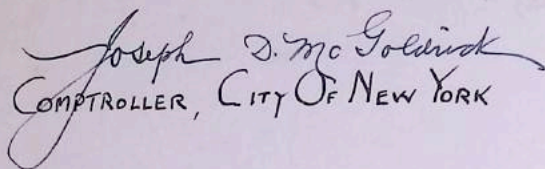 Joseph D. McGoldrick
COMPTROLLER, CITY OF NEW YORK